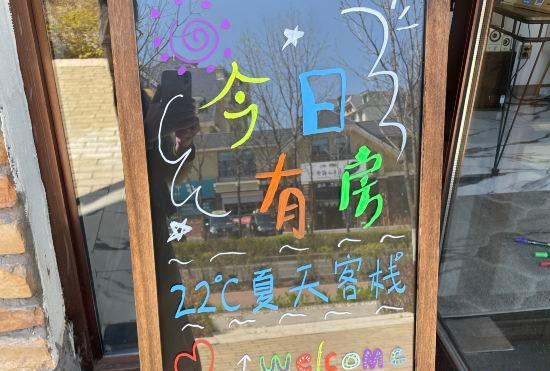 今日
有房
22℃夏天客栈
welcome